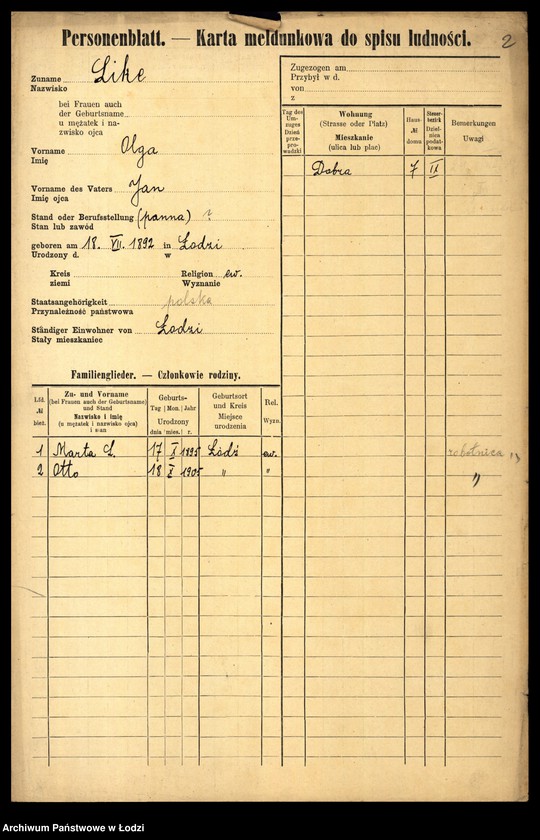 2
Personenblatt. — Karta meldunkowa do spisu ludności.
Zuname Like
Nazwisko
bei Frauen auch
der Geburtsname
u mężatek i na-
zwisko ojca
Vorname Olga
Imię
Vorname des Vaters Jan
Imię ojca
Stand oder Berufsstellung (panna) ?
Stan lub zawód
geboren am 18. VII. 1892 in Łodzi
Urodzony d. w
Kreis Religion ew.
ziemi Wyznanie
Staatsangehörigkeit polska
Przynależność państwowa
Ständiger Einwohner von Łodzi
Stały mieszkaniec
Familienglieder. — Członkowie rodziny.
Lfd. № bież.
Zu- und Vorname
(bei Frauen auch der Geburtsname)
und Stand
Nazwisko i imię
(u mężatek i nazwisko ojca)
i stan
Geburts-
Tag | Mon. | Jahr
Urodzony
dnia | mies. | r.
Geburtsort
und Kreis
Miejsce
urodzenia
Rel.
Wyzn.
1 Marta L. 17 X 1895 Łódź ew. robotnica
2 Otto 18 X 1905 " " "
Zugezogen am
Przybył w d.
von
z
Tag des
Um-
zuges
Dzień
prze-
prowadzki
Wohnung
(Strasse oder Platz)
Mieszkanie
(ulica lub plac)
Haus-
№
domu
Steuer-
bezirk
Dziel-
nica
podat-
kowa
Bemerkungen
Uwagi
Dobra 7 IX
Archiwum Państwowe w Łodzi